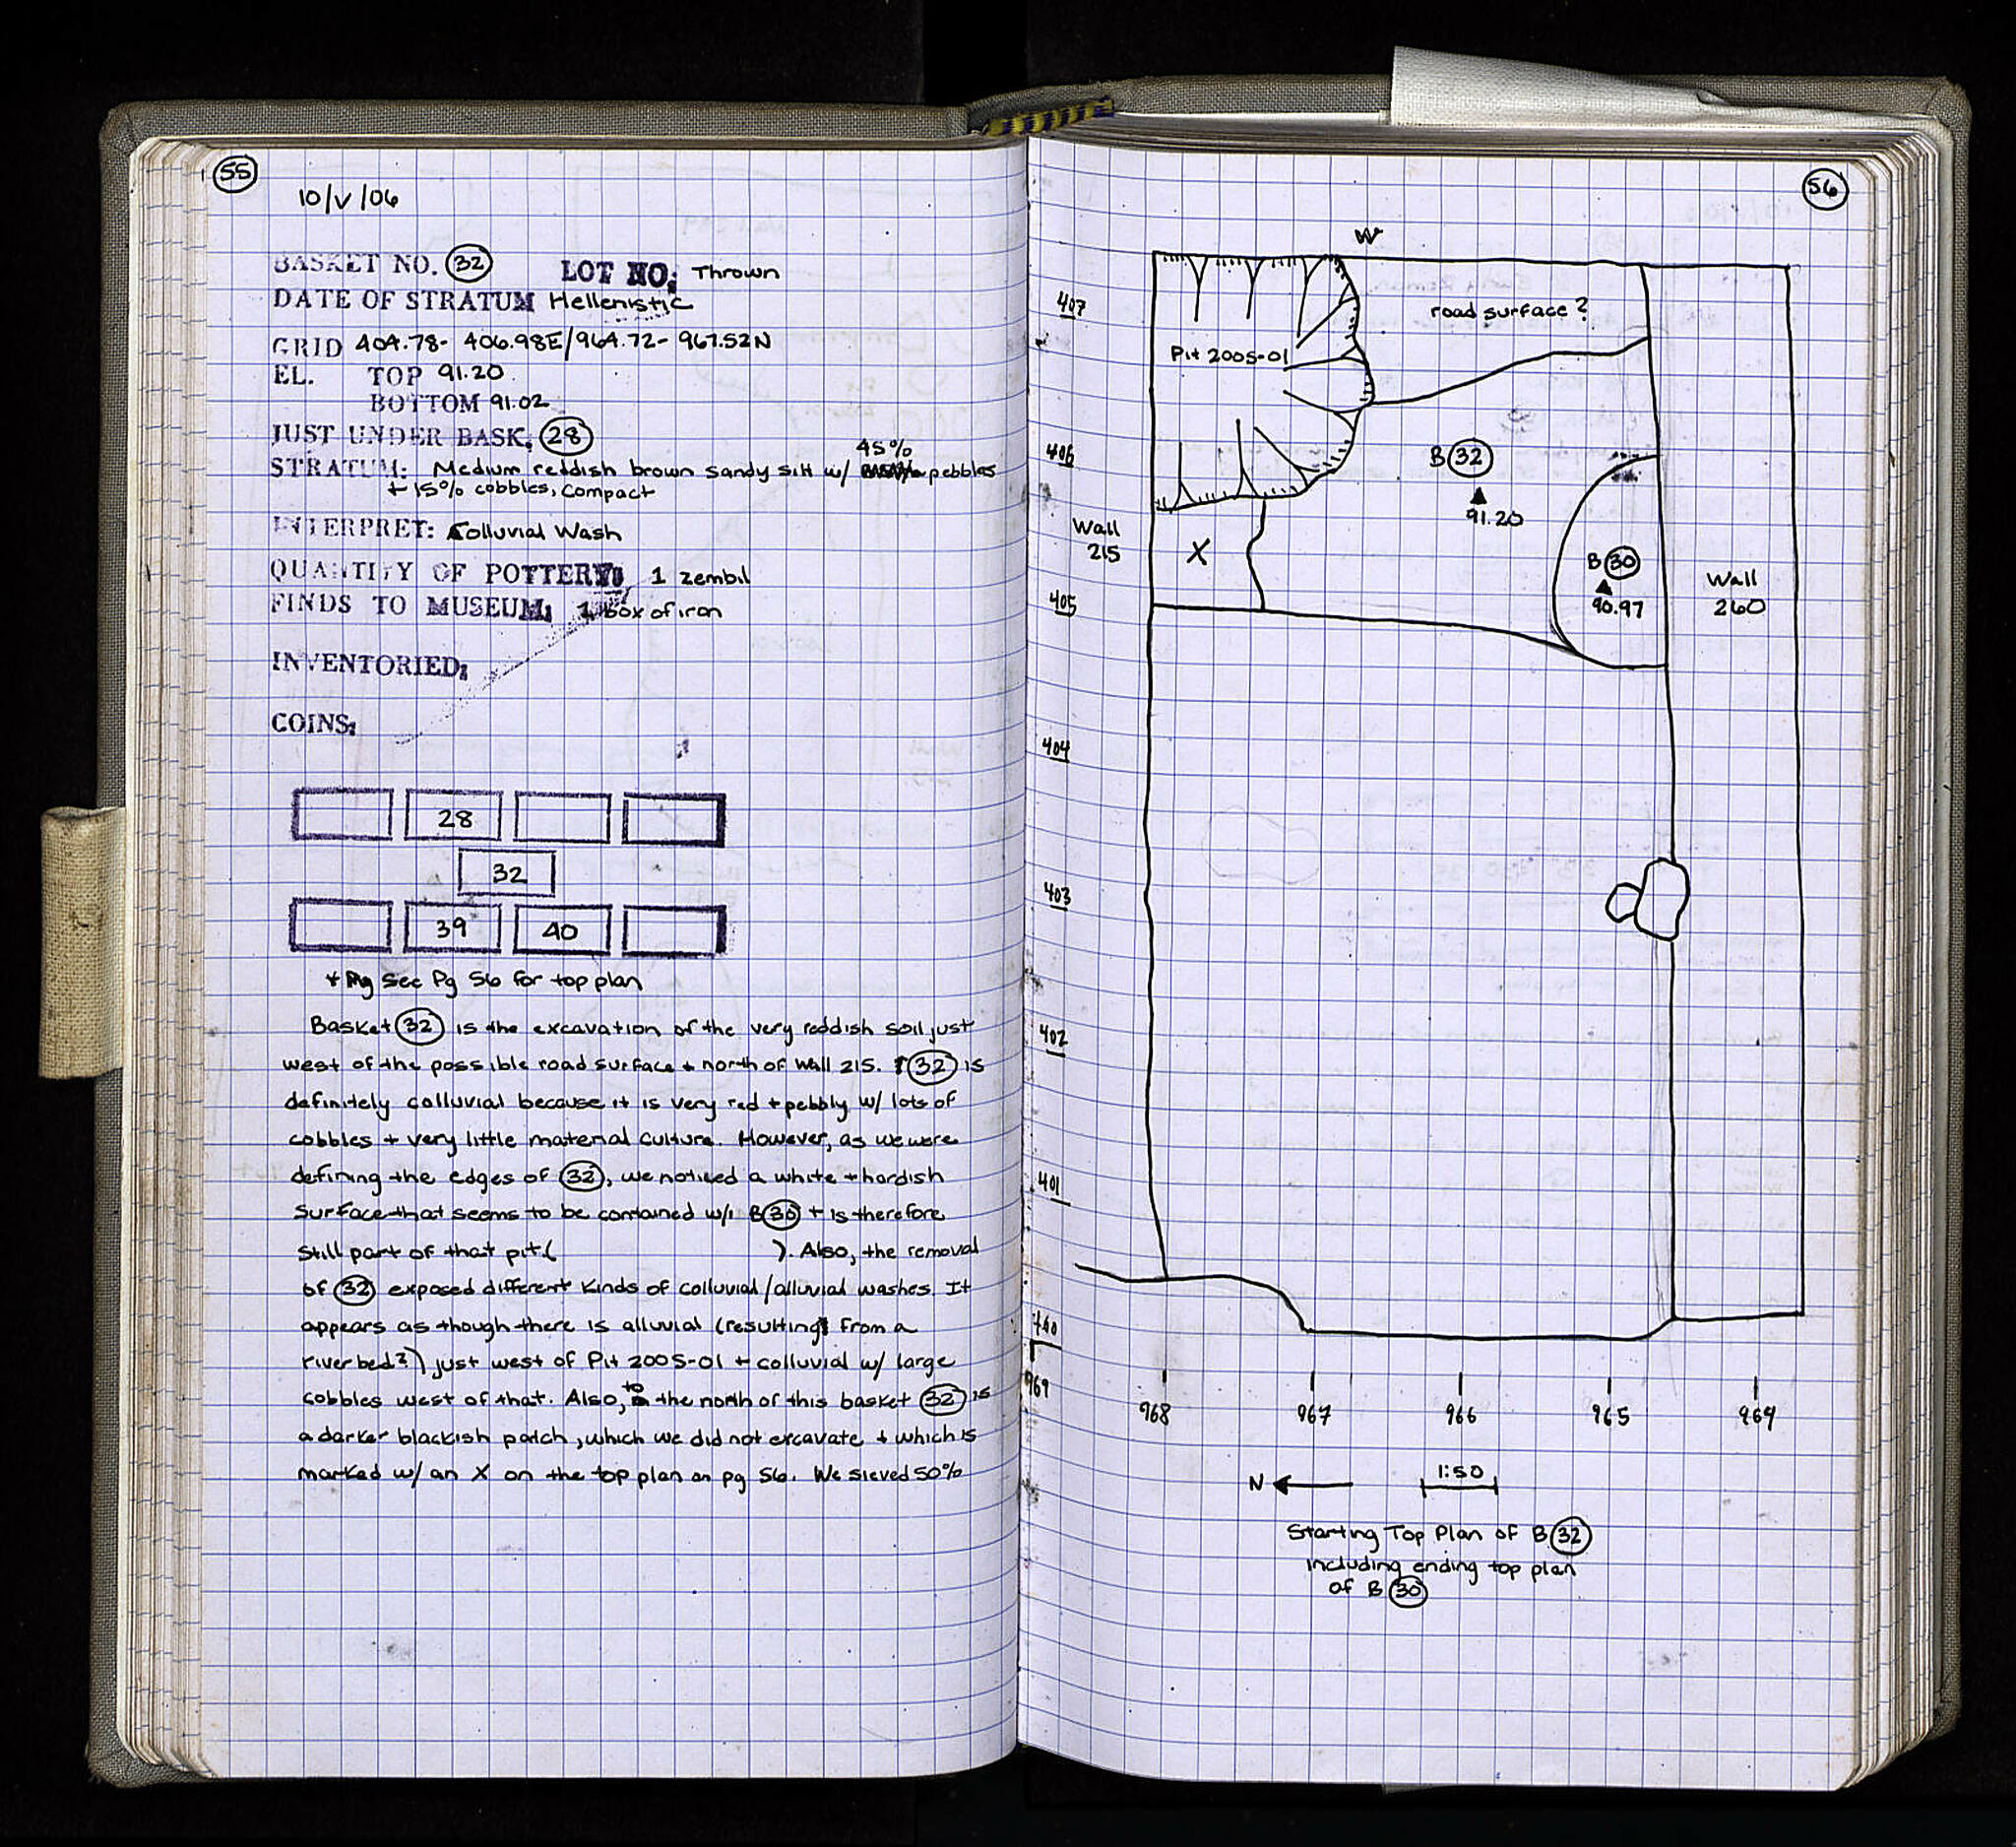 55
10/V/06
BASKET NO. 32 LOT NO: Thrown
DATE OF STRATUM Hellenistic
GRID 404.78- 406.98E/964.72- 967.52N
EL. TOP 91.20
BOTTOM 91.02
JUST UNDER BASK. 28
45%
STRATUM: Medium reddish brown sandy silt w/ pebbles
+ 15% cobbles, compact
INTERPRET: Colluvial Wash
QUANTITY OF POTTERY: 1 zembil
FINDS TO MUSEUM: 1 box of iron
INVENTORIED:
COINS:
28
32
39 40
* See Pg 56 for top plan
Basket 32 is the excavation of the very reddish soil just
west of the possible road surface + north of Wall 215. 32 is
definitely colluvial because it is very red + pebbly w/ lots of
cobbles + very little material culture. However, as we were
defining the edges of 32, we noticed a white + hardish
surface that seems to be contained w/i B30 + is therefore
still part of that pit ( ). Also, the removal
of 32 exposed different kinds of colluvial/alluvial washes. It
appears as though there is alluvial (resulting from a
river bed?) just west of Pit 2005-01 + colluvial w/ large
cobbles west of that. Also, to the north of this basket 32 is
a darker blackish patch, which we did not excavate + which is
marked w/ an X on the top plan on pg 56. We sieved 50%
56
W
407
road surface?
Pit 2005-01
406
B 32
91.20
Wall
215
X
B 30
90.97
Wall
260
405
404
403
402
401
969
968 967 966 965 964
N 1:50
Starting Top Plan of B 32
including ending top plan
of B 30